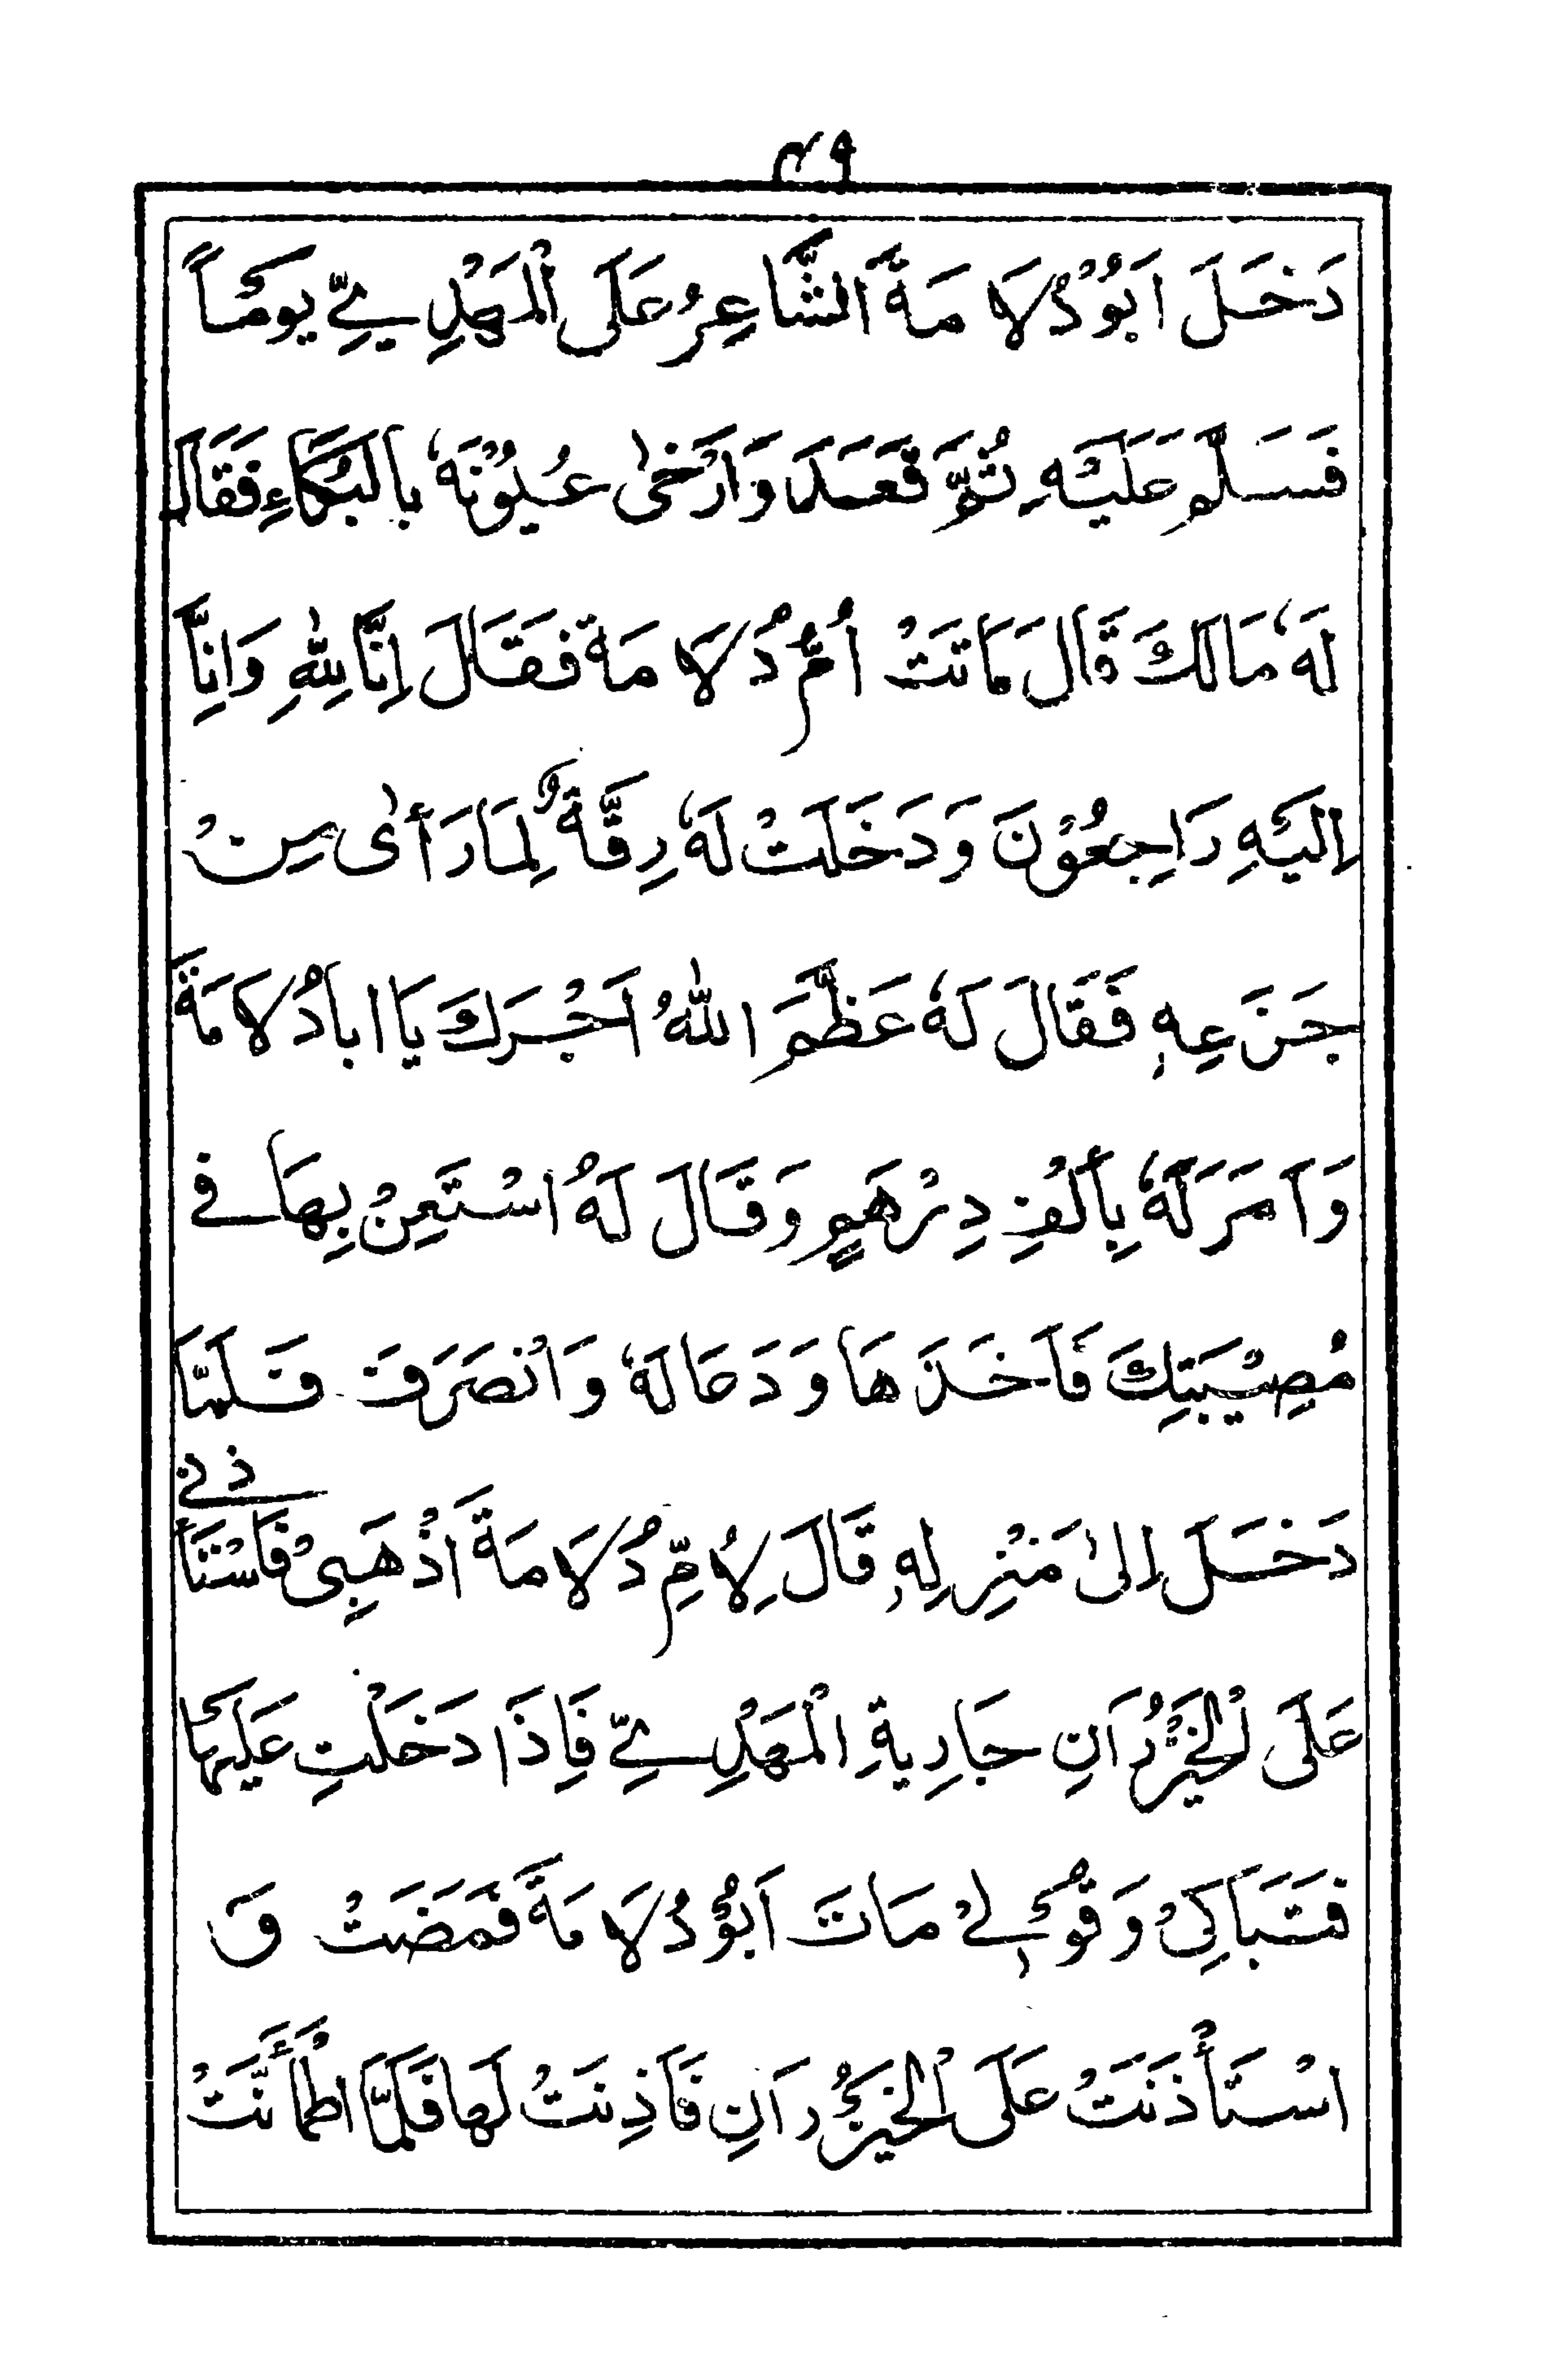 ٤٩
دَخَلَ اَبُوْدُلَامَةَ الشَّاعِرُ عَلَى الْمَهْدِيِّ يَوْمًا
فَسَلَّمَ عَلَيْهِ ثُمَّ قَعَدَ وَارْخٰى عُيُوْنَهٗ بِالْبُكَاءِ فَقَالَ
لَهٗ مَالَكَ قَالَ مَاتَتْ اُمُّ دُلَامَة فَقَالَ اِنَّا لِلّٰهِ وَاِنَّا
اِلَيْهِ رَاجِعُوْنَ وَدَخَلَتْ لَهٗ رِقَّةٌ لِمَا رَأٰى مِنْ
جَزَعِهٖ فَقَالَ لَهٗ عَظَّمَ اللّٰهُ اَجْرَكَ يَا ابا دُلَامَةَ
وَاَمَرَ لَهٗ بِأَلْفِ دِرْهَمٍ وَقَالَ لَهُ اسْتَعِنْ بِهَا فِي
مُصِيْبَتِكَ فَاَخَذَهَا وَدَعَا لَهٗ وَانْصَرَفَ فَلَمَّا
دَخَلَ اِلٰى مَنْزِلِهٖ قَالَ لِاُمِّ دُلَامَةَ اذْهَبِىْ فَاسْتَأْذِنِيْ
عَلَى الْخَيْزُرَانِ جَارِيةِ الْمَهْدِيِّ فَاِذَا دَخَلْتِ عَلَيْهَا
فَتَبَاكِىْ وَقُوْلِيْ مَاتَ اَبُوْ دُلَامَةَ فَمَضَتْ وَ
اسْتَأْذَنَتْ عَلَى الْخَيْزُرَانِ فَاَذِنَتْ لَهَا فَلَمَّا اطْمَأَنَّتْ